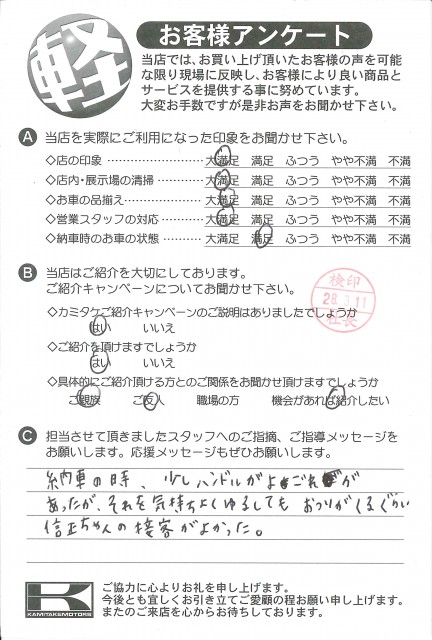 軽
お客様アンケート
当店では、お買い上げ頂いたお客様の声を可能
な限り現場に反映し、お客様により良い商品と
サービスを提供する事に努めています。
大変お手数ですが是非お声をお聞かせ下さい。
A 当店を実際にご利用になった印象をお聞かせ下さい。
◇店の印象 大満足 満足 ふつう やや不満 不満
◇店内・展示場の清掃 大満足 満足 ふつう やや不満 不満
◇お車の品揃え 大満足 満足 ふつう やや不満 不満
◇営業スタッフの対応 大満足 満足 ふつう やや不満 不満
◇納車時のお車の状態 大満足 満足 ふつう やや不満 不満
B 当店はご紹介を大切にしております。
ご紹介キャンペーンについてお聞かせ下さい。
検印
28.3.11
社長
◇カミタケご紹介キャンペーンのご説明はありましたでしょうか
はい いいえ
◇ご紹介を頂けますでしょうか
はい いいえ
◇具体的にご紹介頂ける方とのご関係をお聞かせ頂けますでしょうか
ご親族 ご友人 職場の方 機会があれば紹介したい
C 担当させて頂きましたスタッフへのご指摘、ご指導メッセージを
お願いします。応援メッセージもぜひお願いします。
納車の時、少しハンドルがよごれが
あったが、それを気持ちよくゆるしても おつりがくるぐらい
信正ちゃんの接客がよかった。
K
KAMITAKEMOTORS
ご協力に心よりお礼を申し上げます。
今後とも宜しくお引き立てご愛顧の程お願い申し上げます。
またのご来店を心からお待ちしております。